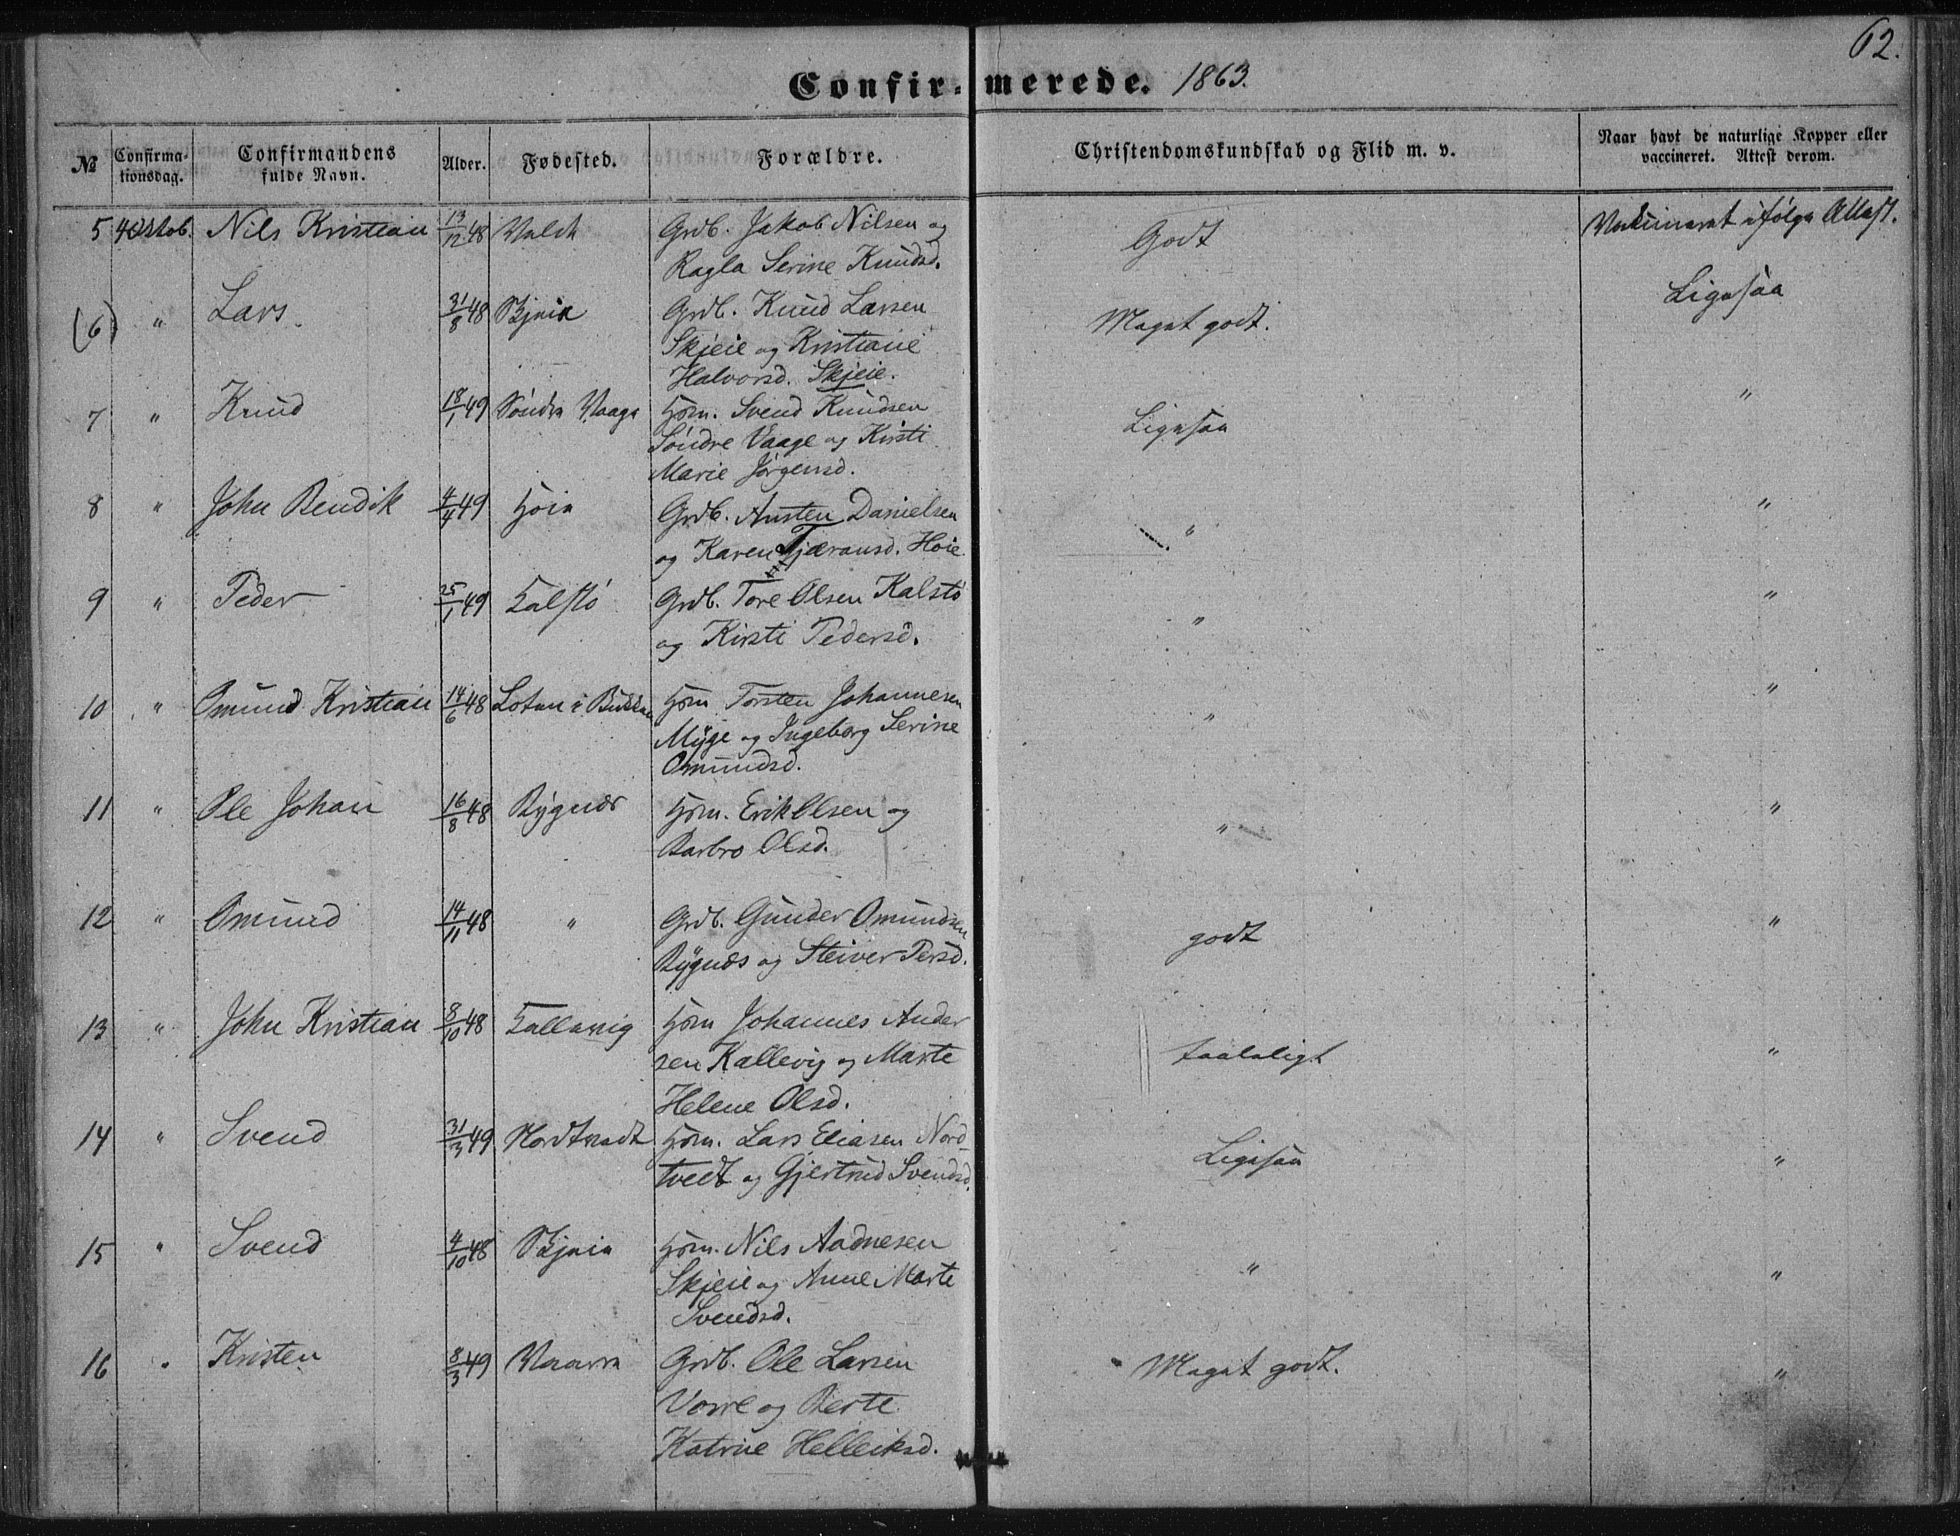 62.
Confirmerede. 1863.
№ Confirmationsdag. Confirmandens fulde Navn. Alder. Fødested. Forældre. Christendomskundskab og Flid m. v. Naar havt de naturlige Kopper eller vaccineret. Attest derom.
5 4 Oktob. Nils Kristian 13/12 48 Grdb. Jakob Nilsen og Godt Vakcineret ifølge Attest.
Ragla Serine Knudsd.
(6) " Lars 31/8 48 Skjeie Grdb. Knud Larsen Meget godt. Ligesaa
Skjeie og Kristiane
Halvorsd. Skjeie.
7 " Knud 18/1 49 Söndre Vaage Hsm. Svend Knudsen Ligesaa "
Söndre Vaage og Kirsti
Marie Jörgensd.
8 " John Bendik 4/4 49 Höie Grdb. Austen Danielsen " "
og Karen Tjæransd. Höie
9 " Peder 25/1 49 Kalstö Grdb. Tore Olsen Kalstö " "
og Kirsti Pedersd.
10 " Omund Kristian 14/6 48 Loten i Bukken Hsm Torsten Johannesen " "
Myge og Ingeborg Serine
Omundsd.
11 " Ole Johan 16/8 48 Bygnes Hsm. Erik Olsen og " "
Barbro Olsd.
12 " Omund 14/11 48 " Grdb. Gunder Omundsen godt "
Bygnæs og Steiver Persd.
13 " John Kristian 8/10 48 Kallevig Hsm Johannes Ander taaleligt "
sen Kallevig og Marte
Helene Olsd.
14 " Svend 31/3 49 Nordtvedt Hsm. Lars Eliasen Nord Ligesaa "
tvedt og Gjertrud Svendsd.
15 " Svend 4/10 48 Skjeie Hsm. Nils Aadnesen " "
Skjeie og Anne Marte
Svendsd.
16 " Kristen 8/3 49 Vaarre Grdb. Ole Larsen Meget godt. "
Vorre og Berte
Katrine Helleiksd.